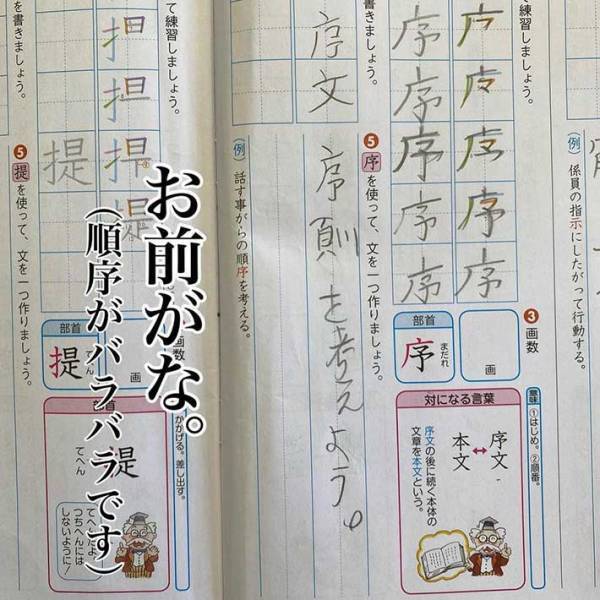 (例)係員の指示にしたがって行動する。
て練習しましょう。
序
序
序
序
序
序
序
3 画数
画
部首
序
まだれ
意味 ①はじめ。②順番。
対になる言葉
序文
↔
本文
序文の後に続く本体の
文章を本文という。
を書きましょう。
5 序を使って、文を一つ作りましょう。
序文
序則を考えよう。
(例)話す事がらの順序を考える。
て練習しましょう。
担
提
提
画
部首
提
かかげる。差し出す。
部首
提
てへん
てへんだよ
つちへんには
しないように!
を書きましょう。
5 提を使って、文を一つ作りましょう。
お前がな。
(順序がバラバラです)